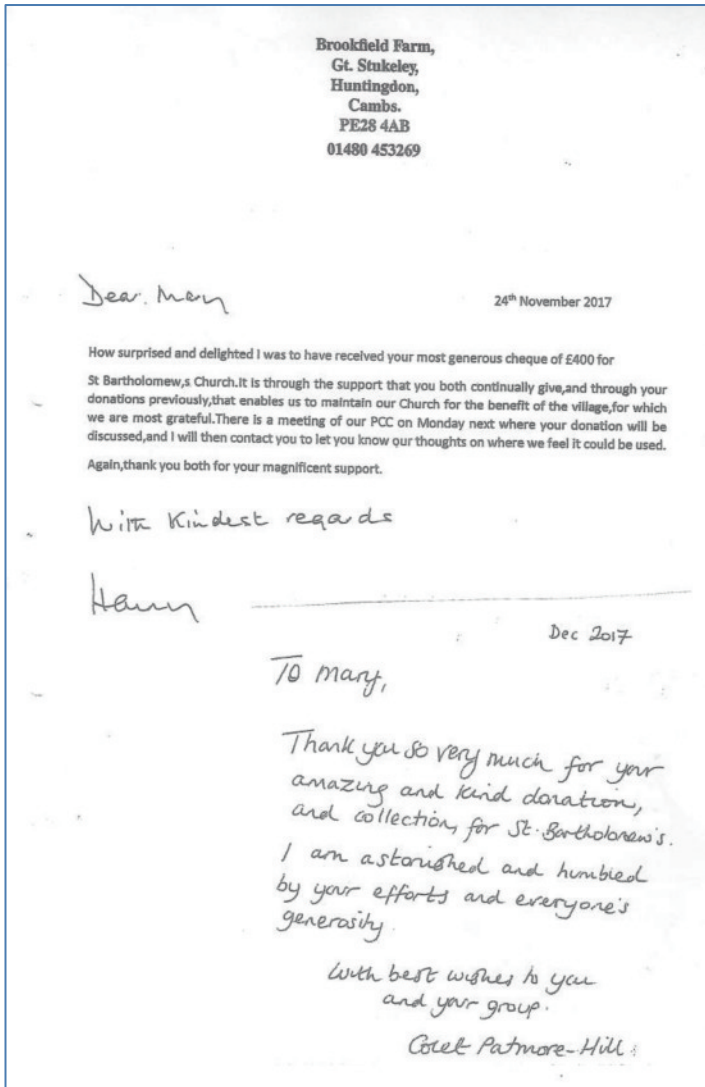 Brookfield Farm,
Gt. Stukeley,
Huntingdon,
Cambs.
PE28 4AB
01480 453269
Dear. Mary
24th November 2017
How surprised and delighted I was to have received your most generous cheque of £400 for
St Bartholomew,s Church.It is through the support that you both continually give,and through your
donations previously,that enables us to maintain our Church for the benefit of the village,for which
we are most grateful.There is a meeting of our PCC on Monday next where your donation will be
discussed,and I will then contact you to let you know our thoughts on where we feel it could be used.
Again,thank you both for your magnificent support.
With Kindest regards
Dec 2017
To Mary,
Thank you so very much for your
amazing and kind donation,
and collection, for St. Bartholomew's.
I am astonished and humbled
by your efforts and everyone's
generosity.
With best wishes to you
and your group.
Patmore-Hill